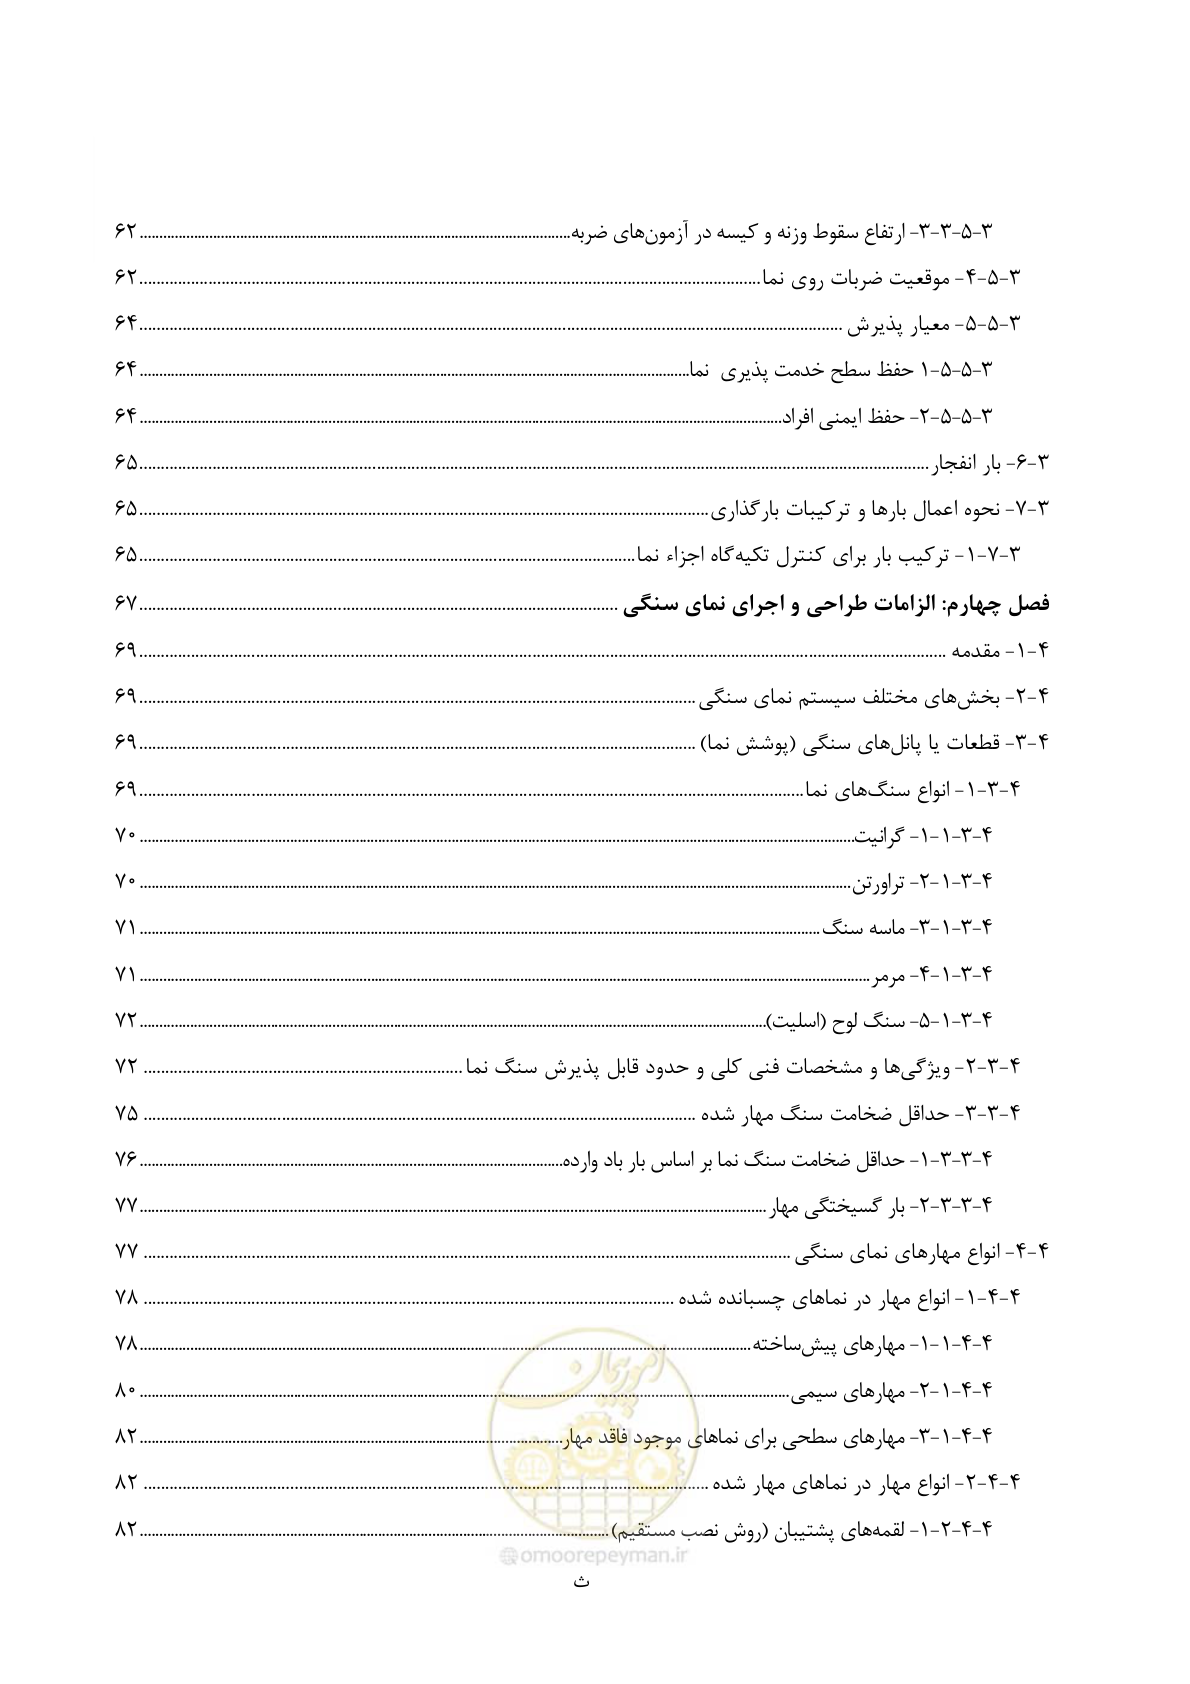 ۳-۵-۳-۳- ارتفاع سقوط وزنه و کیسه در آزمون‌های ضربه ........ ۶۲
۳-۵-۴- موقعیت ضربات روی نما ........ ۶۲
۳-۵-۵- معیار پذیرش ........ ۶۴
۳-۵-۵-۱ حفظ سطح خدمت پذیری نما ........ ۶۴
۳-۵-۵-۲- حفظ ایمنی افراد ........ ۶۴
۳-۶- بار انفجار ........ ۶۵
۳-۷- نحوه اعمال بارها و ترکیبات بارگذاری ........ ۶۵
۳-۷-۱- ترکیب بار برای کنترل تکیه‌گاه اجزاء نما ........ ۶۵
فصل چهارم: الزامات طراحی و اجرای نمای سنگی ........ ۶۷
۴-۱- مقدمه ........ ۶۹
۴-۲- بخش‌های مختلف سیستم نمای سنگی ........ ۶۹
۴-۳- قطعات یا پانل‌های سنگی (پوشش نما) ........ ۶۹
۴-۳-۱- انواع سنگ‌های نما ........ ۶۹
۴-۳-۱-۱- گرانیت ........ ۷۰
۴-۳-۱-۲- تراورتن ........ ۷۰
۴-۳-۱-۳- ماسه سنگ ........ ۷۱
۴-۳-۱-۴- مرمر ........ ۷۱
۴-۳-۱-۵- سنگ لوح (اسلیت) ........ ۷۲
۴-۳-۲- ویژگی‌ها و مشخصات فنی کلی و حدود قابل پذیرش سنگ نما ........ ۷۲
۴-۳-۳- حداقل ضخامت سنگ مهار شده ........ ۷۵
۴-۳-۳-۱- حداقل ضخامت سنگ نما بر اساس بار باد وارده ........ ۷۶
۴-۳-۳-۲- بار گسیختگی مهار ........ ۷۷
۴-۴- انواع مهارهای نمای سنگی ........ ۷۷
۴-۴-۱- انواع مهار در نماهای چسبانده شده ........ ۷۸
۴-۴-۱-۱- مهارهای پیش‌ساخته ........ ۷۸
۴-۴-۱-۲- مهارهای سیمی ........ ۸۰
۴-۴-۱-۳- مهارهای سطحی برای نماهای موجود فاقد مهار ........ ۸۲
۴-۴-۲- انواع مهار در نماهای مهار شده ........ ۸۲
۴-۴-۲-۱- لقمه‌های پشتیبان (روش نصب مستقیم) ........ ۸۲
امور پیمان
@omoorepeyman.ir
ث